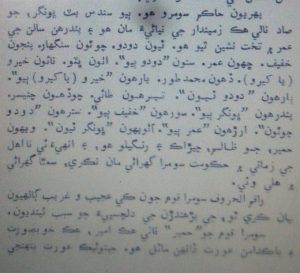 پهريون حاڪم سومرو هو. ٻيو سندس پٽ ڀونگر، جو
صاد نالي هڪ زميندار جي نياڻيءَ مان هو ۽ پندرهن سالن جي
عمر ۾ تخت نشين ٿيو هو. ٽيون دودو. چوٿون سنگهار. پنجون
خفيف. ڇهون عمر. ستون "دودو ٻيو". اٺون پٿو. نائون خيرو
(يا ڪيرو). ڏهون محمد طور. يارهون "خيرو (يا ڪيرو) ٻيو".
ٻارهون "دودو ٽيون". تيرهون طائي. چوڏهون چنيسر.
پندرهون "ڀونگر ٻيو". سورهون "خفيف ٻيو". سترهون "دودو
چوٿون". ارڙهون "عمر ٻيو". اڻويهون "ڀونگر ٽيون". ويهون
حمير، جو ظالم، چيڙاڪ ۽ رنگيلو هو. ۽ انهيءَ ئي نااهل
جي زماني ۾ حڪومت سومرا گهراڻي مان نڪري، سما گهراڻي
۾ هلي وئي.
راقم الحروف سومرا قوم جون ڪي عجيب ۽ غريب ڳالهيون
بيان ڪري ٿو، جي پڙهندڙن جي دلچسپيءَ جو سبب ٿينديون.
سومرا قوم جو "حمير" نالي هڪ امير، هڪ خوبصورت
۽ پاڪدامن عورت ڏانهن مائل هو. جيتوڻيڪ عورت پنهنجي